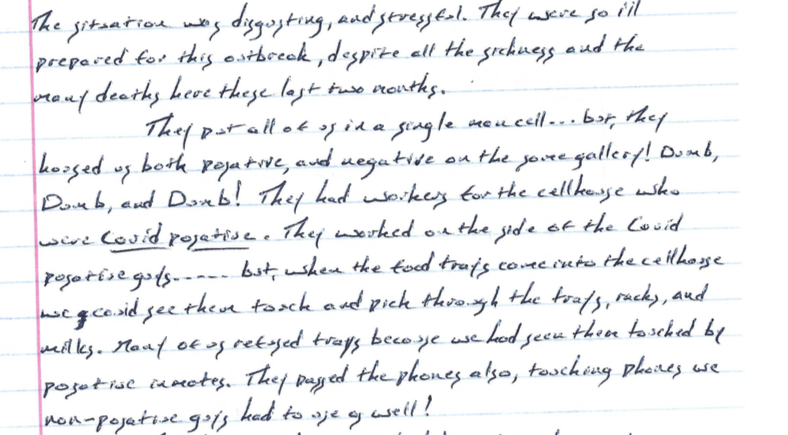 The situation was disgusting, and stressful. They were so ill
prepared for this outbreak, despite all the sickness and the
many deaths here these last two months.
They put all of us in a single man cell... but, they
housed us both posative, and negative on the same gallery! Dumb,
Dumb, and Dumb! They had workers for the cellhouse who
were Covid posative. They worked on the side of the Covid
posative guys...... but, when the food trays come into the cellhouse
we could see them touch and pick through the trays, racks, and
milks. Many of us refused trays because we had seen them touched by
posative inmates. They passed the phones also, touching phones we
non-posative guys had to use as well!